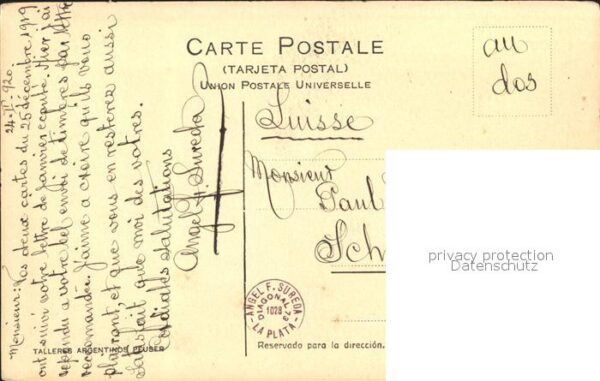 24-II-920.
Monsieur: Vos deux cartes du 25 décembre 1919
ont suivi votre lettre de janvier écoulé. Hier j'ai
répondu a votre bel envoi de timbres par lettre
recommandée. J'aime a croire qu'ils vous
plairont, et que vous en resterez aussi
satisfait que moi des vôtres.
Cordiales salutations
Angel F. Sureda
TALLERES ARGENTINOS PEUSER
CARTE POSTALE
(TARJETA POSTAL)
UNION POSTALE UNIVERSELLE
au
dos
Suisse
Monsieur
Paul
Sch
privacy protection
Datenschutz
ANGEL F. SUREDA
DIAGONAL 73
1028
LA PLATA
Reservado para la dirección.